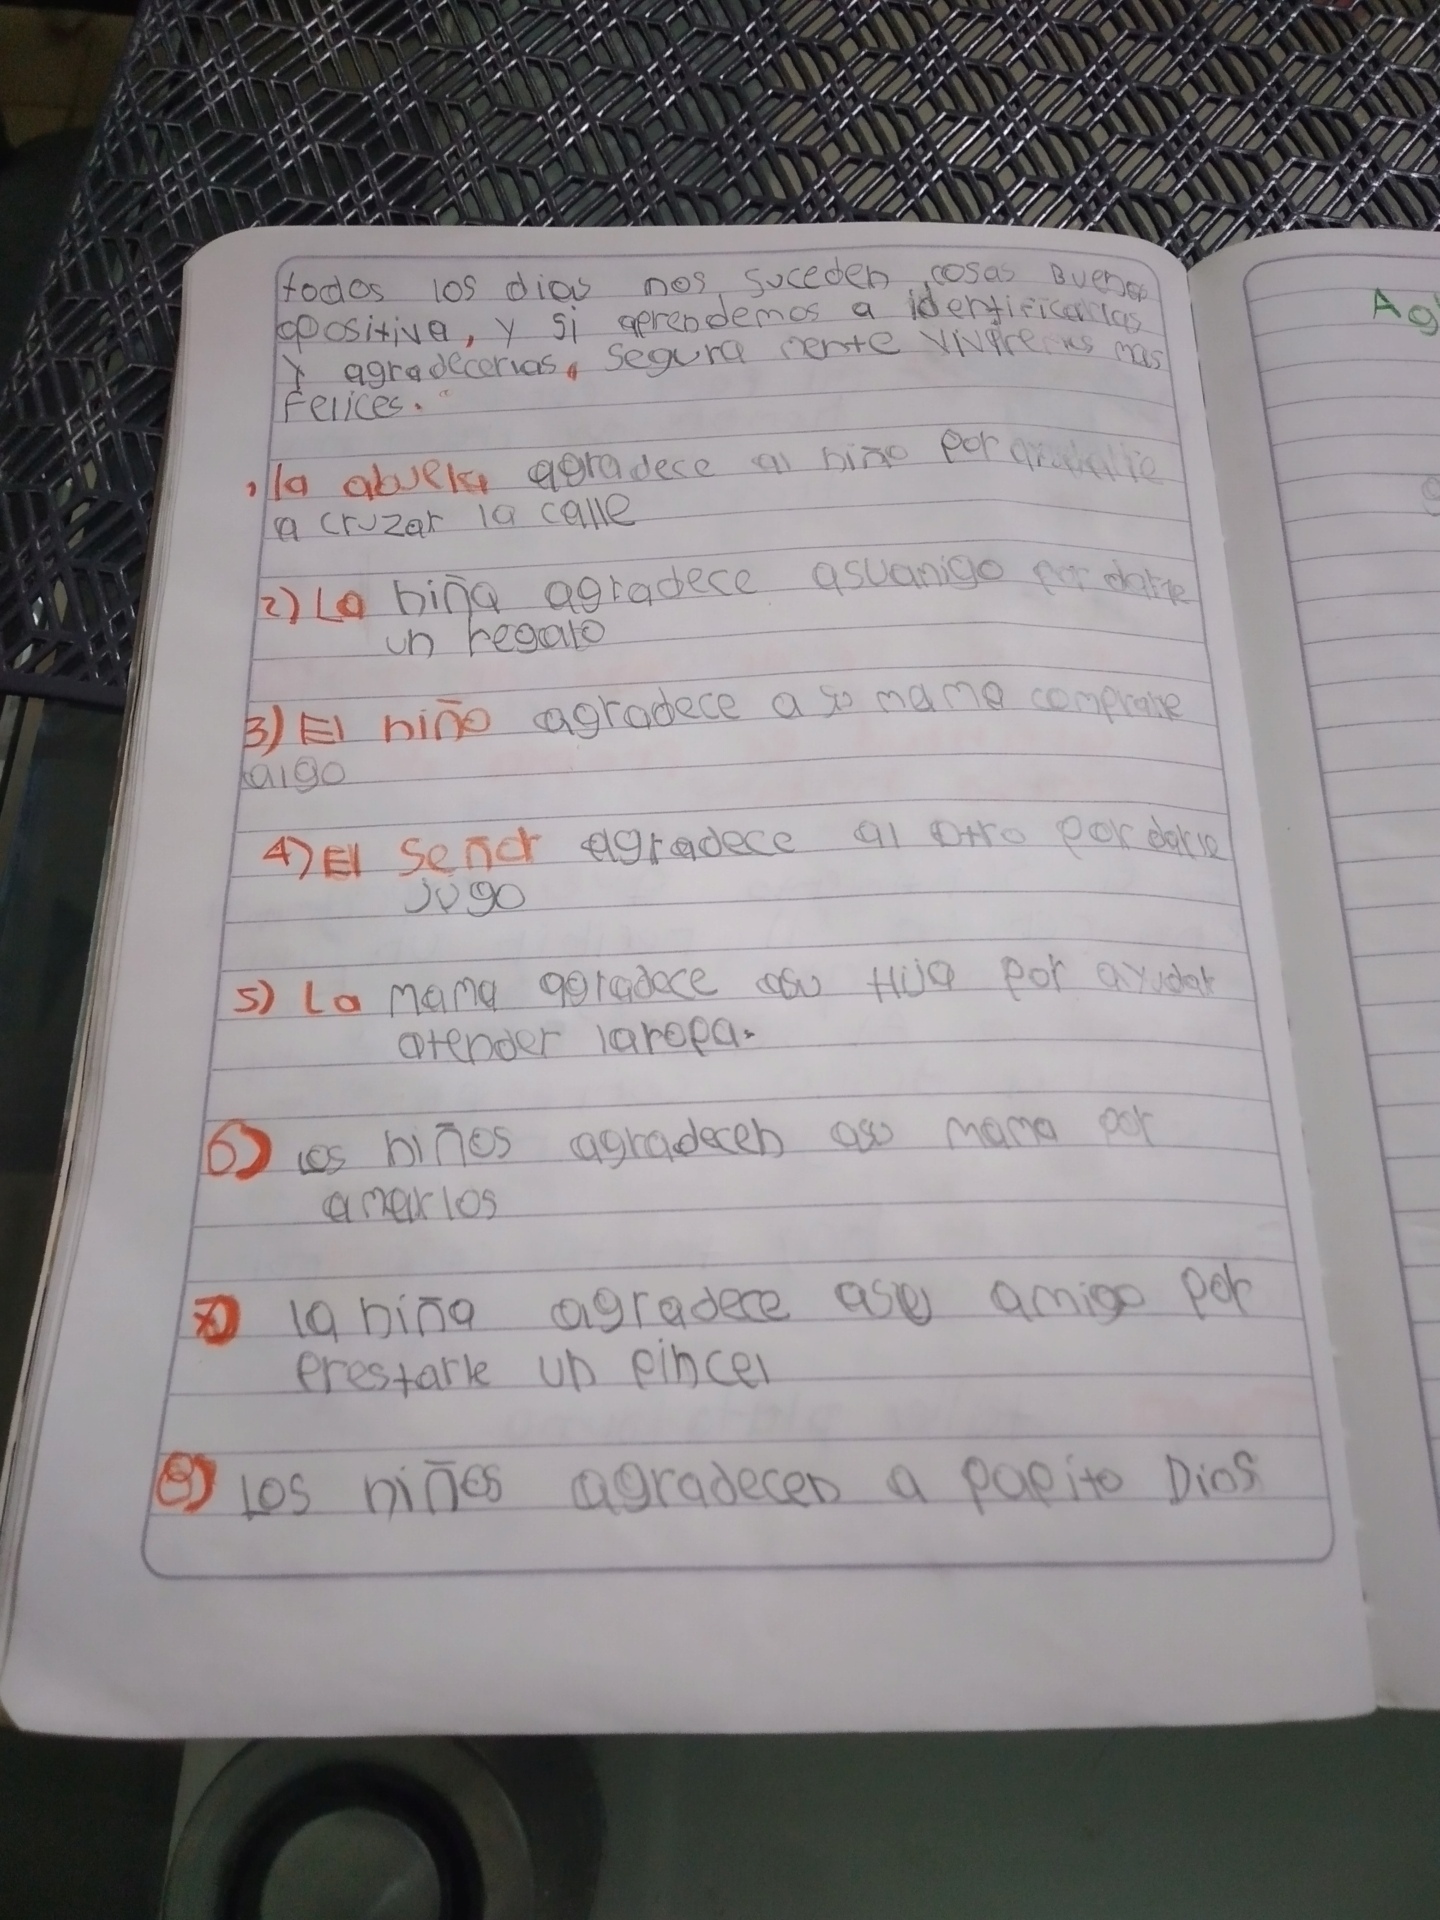 todos los dias nos suceden cosas Buenas
opositiva, y si aprendemos a identificarlas
y agradecerlas, segura mente viviremos mas
Felices.
la abuela agradece al niño por
a cruzar la calle
2) La niña agradece asuamigo por darle
un regalo
3) El niño agradece a su mama comprarle
algo
4) El Señor agradece al otro por darle
jugo
5) La mama agradece asu Hija por ayudar
atender laropa.
6) los niños agradecen asu mama por
amarlos
7) la niña agradece asu amigo por
prestarle un pincel
8) Los niños agradecen a papito Dios
Ag